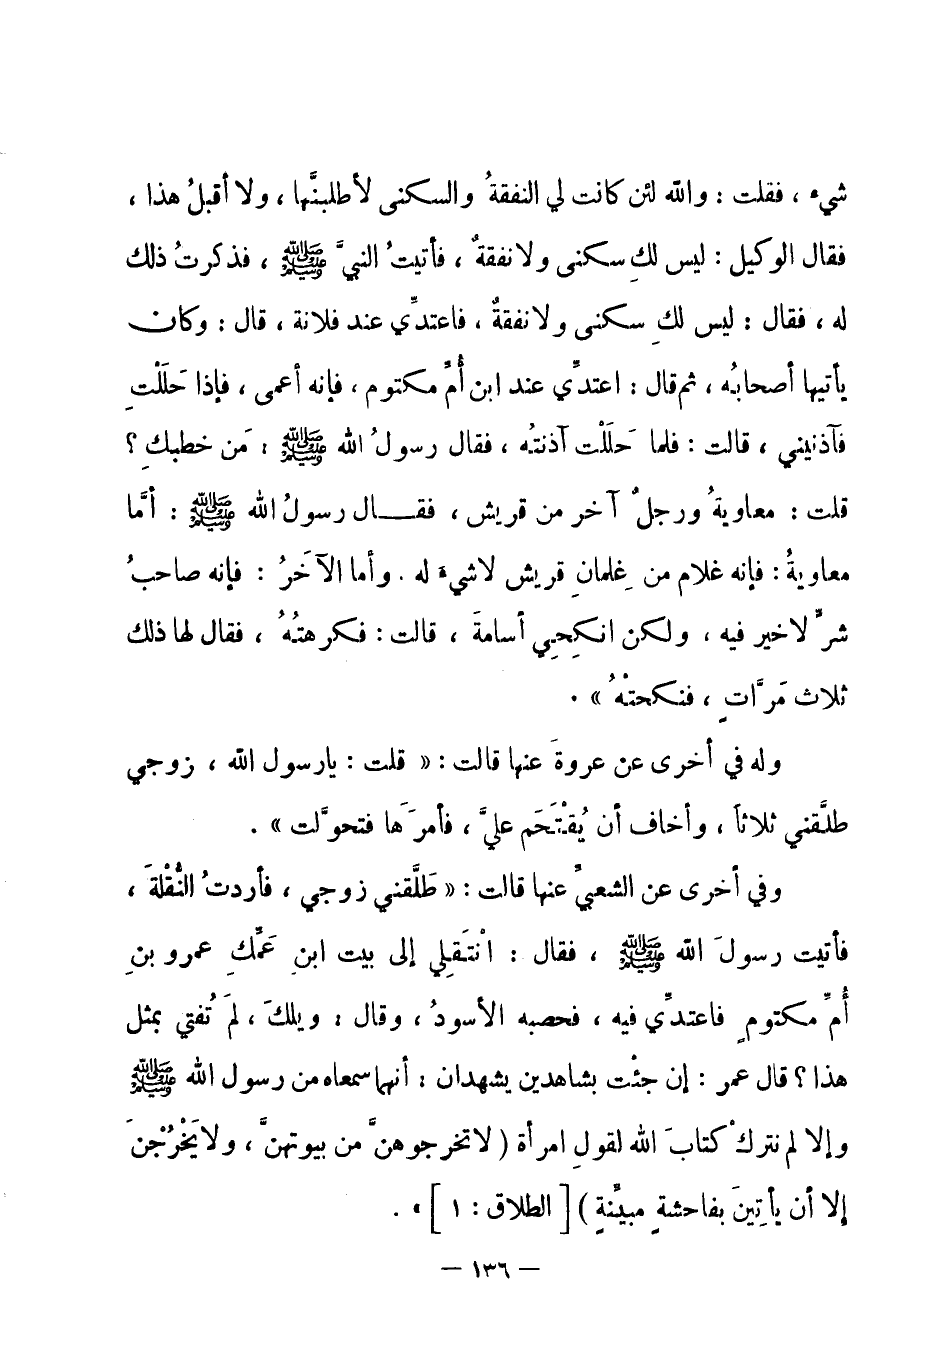 شيء ، فقلت : والله لئن كانت لي النفقةُ والسكنى لأطلبنَّها ، ولا أقبلُ هذا ،
فقال الوكيل : ليس لكِ سكنى ولا نفقةٌ ، فأتيتُ النبيَّ ﷺ ، فذكرتُ ذلك
له ، فقال : ليس لكِ سكنى ولا نفقةٌ ، فاعتدِّي عند فلانة ، قال : وكان
يأتيها أصحابُه ، ثم قال : اعتدِّي عند ابن أُمِّ مكتوم ، فإنه أعمى ، فإذا حَلَلْتِ
فآذنيني ، قالت : فلما حَلَلْت آذنتُه ، فقال رسولُ الله ﷺ : مَن خطبكِ ؟
قلت : معاويةُ ورجلٌ آخر من قريش ، فقـــال رسولُ الله ﷺ : أمَّا
معاويةُ : فإنه غلام من غِلمانِ قريش لا شيءَ له . وأما الآخَرُ : فإنه صاحبُ
شرٍّ لا خير فيه ، ولكن انكِحِي أسامةَ ، قالت : فكرهتُهُ ، فقال لها ذلك
ثلاث مَرَّاتٍ ، فنكحتْهُ » .
وله في أخرى عن عروةَ عنها قالت : « قلت : يا رسول الله ، زوجي
طلَّقني ثلاثاً ، وأخاف أن يُقْتَحَم عليَّ ، فأمرَها فتحوَّلت » .
وفي أخرى عن الشعبيِّ عنها قالت : « طَلَّقني زوجي ، فأردتُ النُّقْلَةَ ،
فأتيت رسولَ الله ﷺ ، فقال : انْتَقِلي إلى بيت ابنِ عَمِّكِ عمرو بنِ
أُمِّ مكتومٍ فاعتدِّي فيه ، فحصبه الأسودُ ، وقال : ويلكَ ، لمَ تُفتي بمثل
هذا ؟ قال عمر : إن جئْت بشاهدين يشهدان : أنهما سمعاه من رسول الله ﷺ
وإلا لم نتركْ كتابَ الله لقولِ امرأة ( لا تخرجوهنَّ من بيوتهنَّ ، ولا يَخْرُجْنَ
إلا أن يأتِينَ بفاحشةٍ مبيِّنةٍ ) [ الطلاق : ١ ] » .
— ١٣٦ —